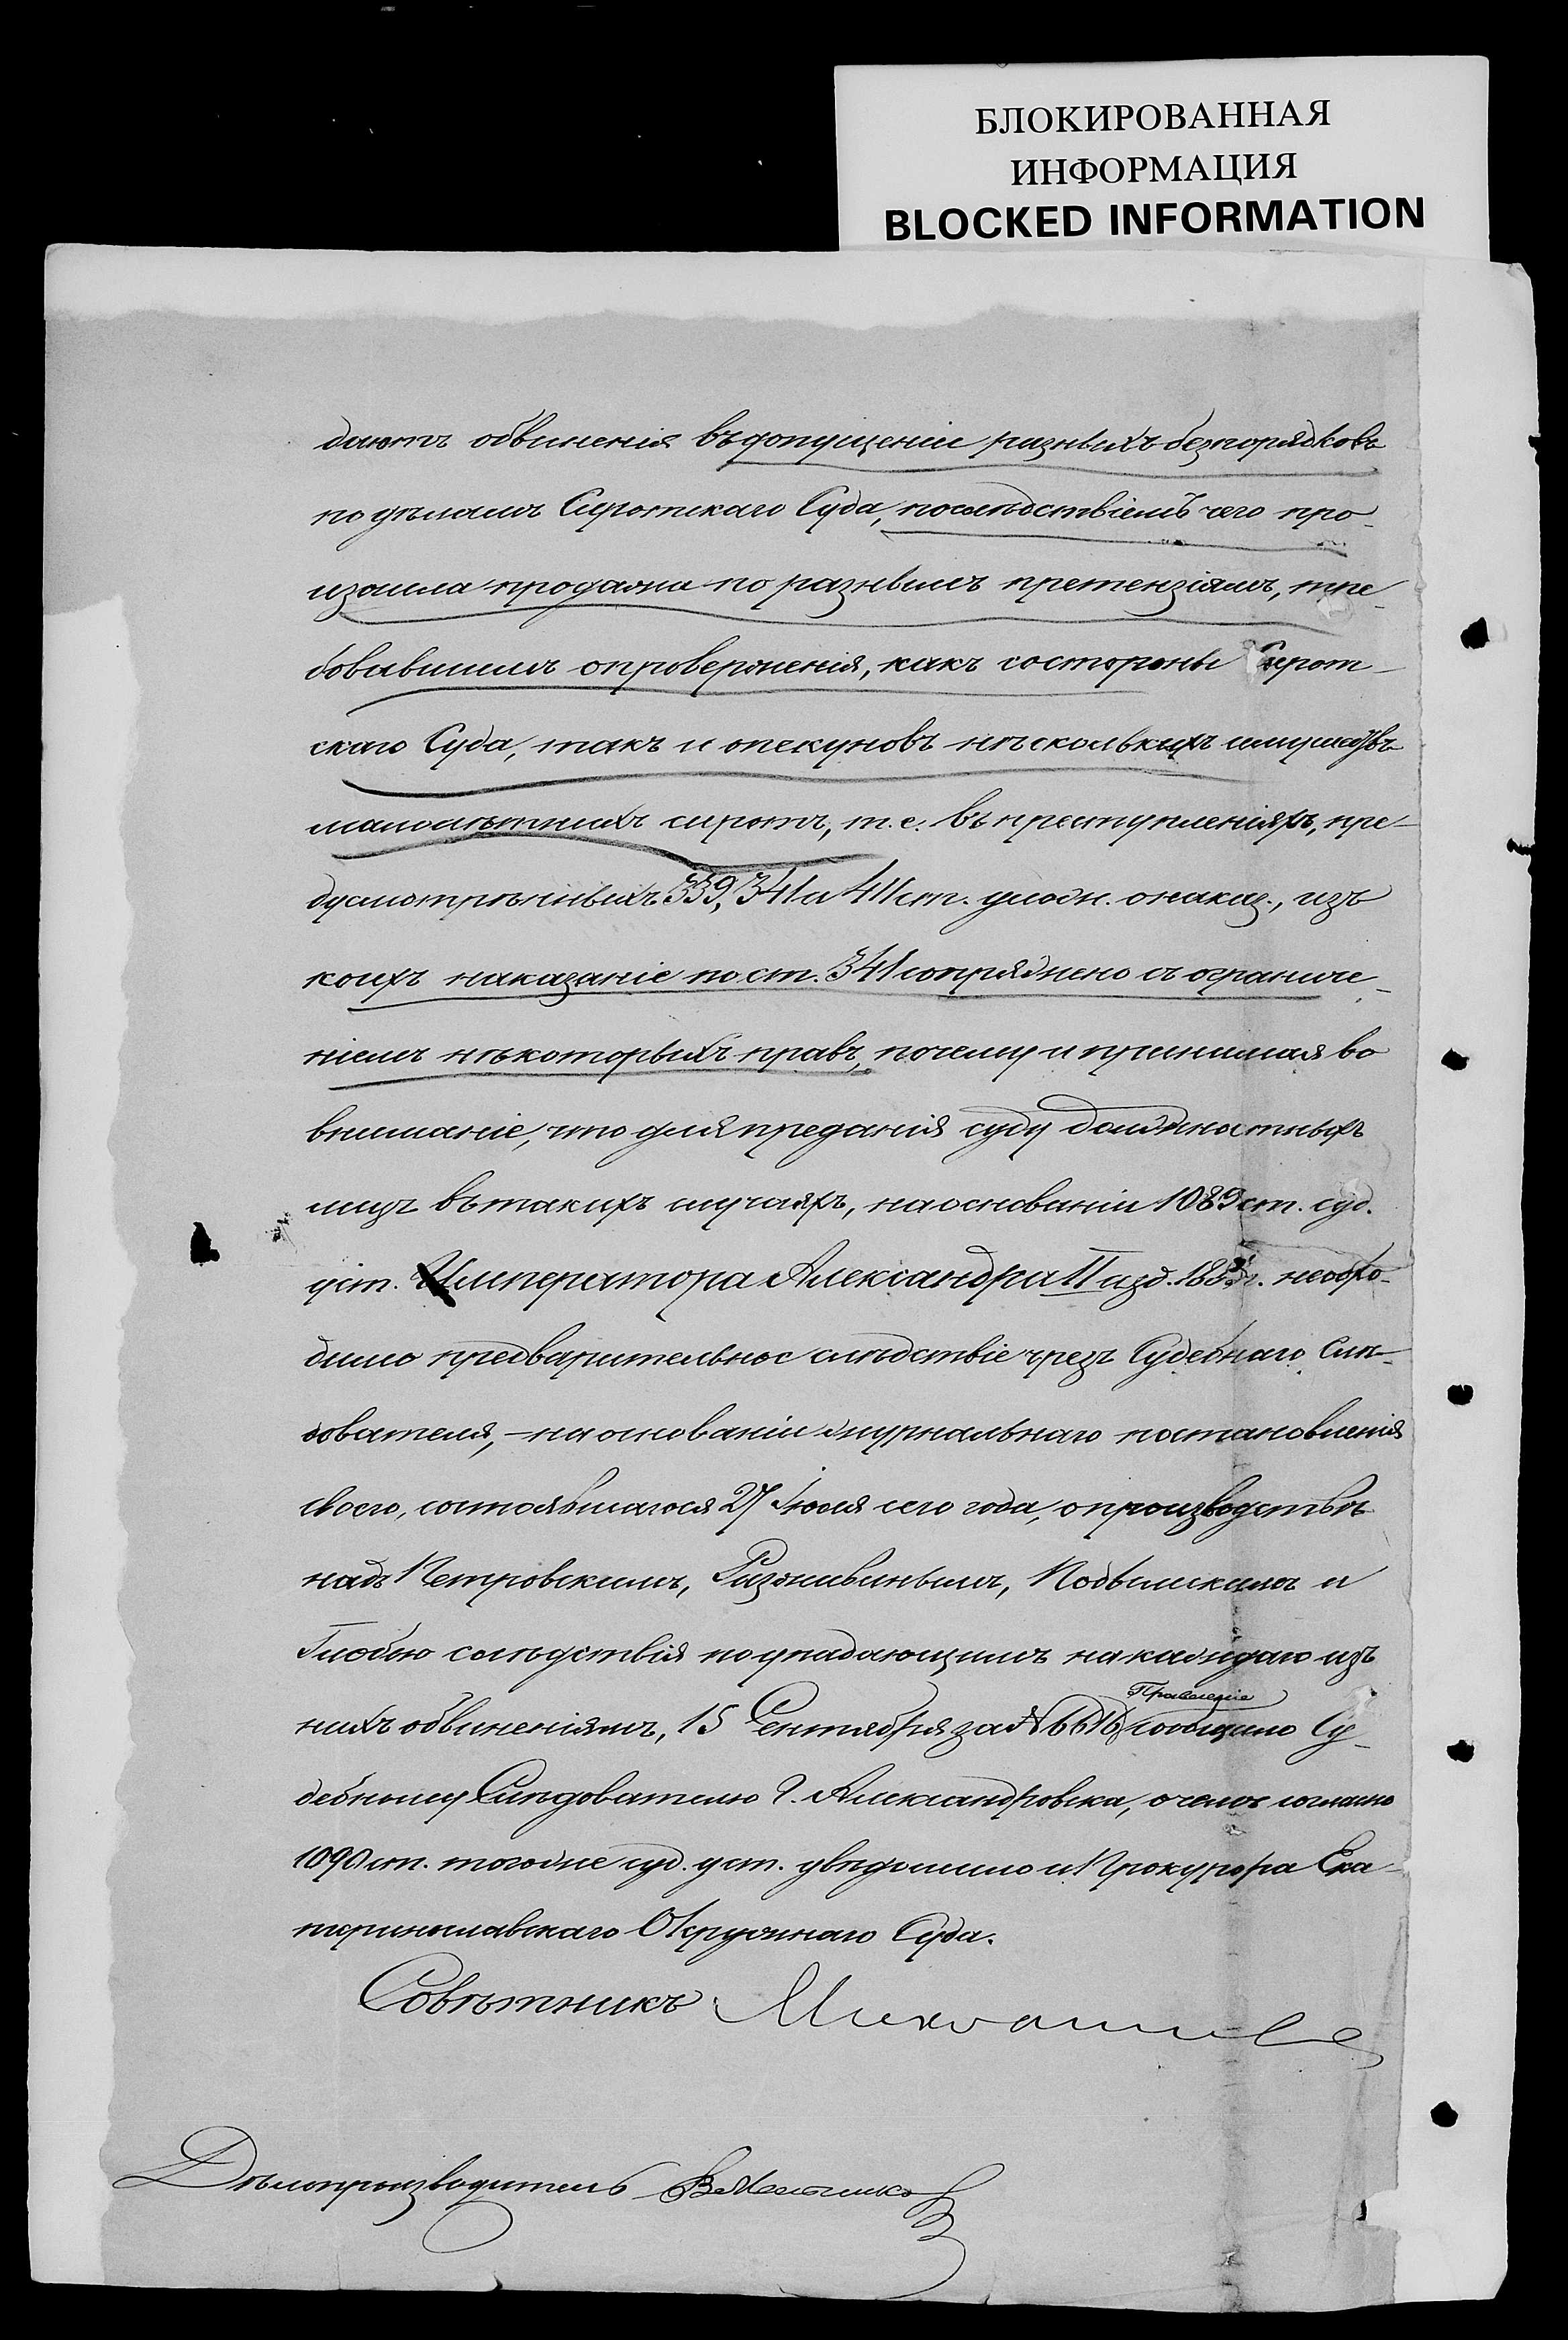 БЛОКИРОВАННАЯ
ИНФОРМАЦИЯ
BLOCKED INFORMATION
даютъ обвиненія въ допущеніи разныхъ безпорядковъ
по дѣламъ Сиротскаго Суда, послѣдствіемъ чего про-
изошла продажа по разнымъ претензіямъ, тре-
бовавшимъ опроверженія, какъ со стороны Сирот-
скаго Суда, такъ и опекуновъ нѣсколькихъ имуществъ
малолѣтнихъ сиротъ, т.е. въ преступленіяхъ, пре-
дусмотрѣнныхъ 339, 341 и 411 ст. улож. о наказ., изъ
коихъ наказаніе по ст. 341 сопряжено съ ограниче-
ніемъ нѣкоторыхъ правъ, почему и принимая во
вниманіе, что для преданія суду должностныхъ
лицъ въ такихъ случаяхъ, на основаніи 1089 ст. суд.
уст. Императора Александра II изд. 1883 г. необхо-
димо предварительное слѣдствіе чрезъ Судебнаго Слѣ-
дователя, – на основаніи журнальнаго постановленія
своего, состоявшагося 27 Іюля сего года, о производствѣ
надъ Петровскимъ, Разживинымъ, Подвымскимъ и
Глобою слѣдствія по упадающимъ на каждаго изъ
нихъ обвиненіямъ, 15 Сентября за № 6616 Правленіе сообщило Су-
дебному Слѣдователю г. Александровска, о чемъ согласно
1090 ст. тогоже суд. уст. увѣдомило и Прокурора Ека-
теринославскаго Окружнаго Суда.
Совѣтникъ
Дѣлопроизводитель